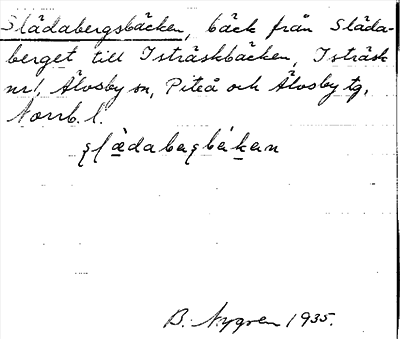 Slädabergsbäcken, bäck från Släda-
berget till Isträskbäcken, Isträsk
nr 1, Älvsby sn, Piteå och Älvsby tg,
Norrb. l.
B. Nygren 1935.